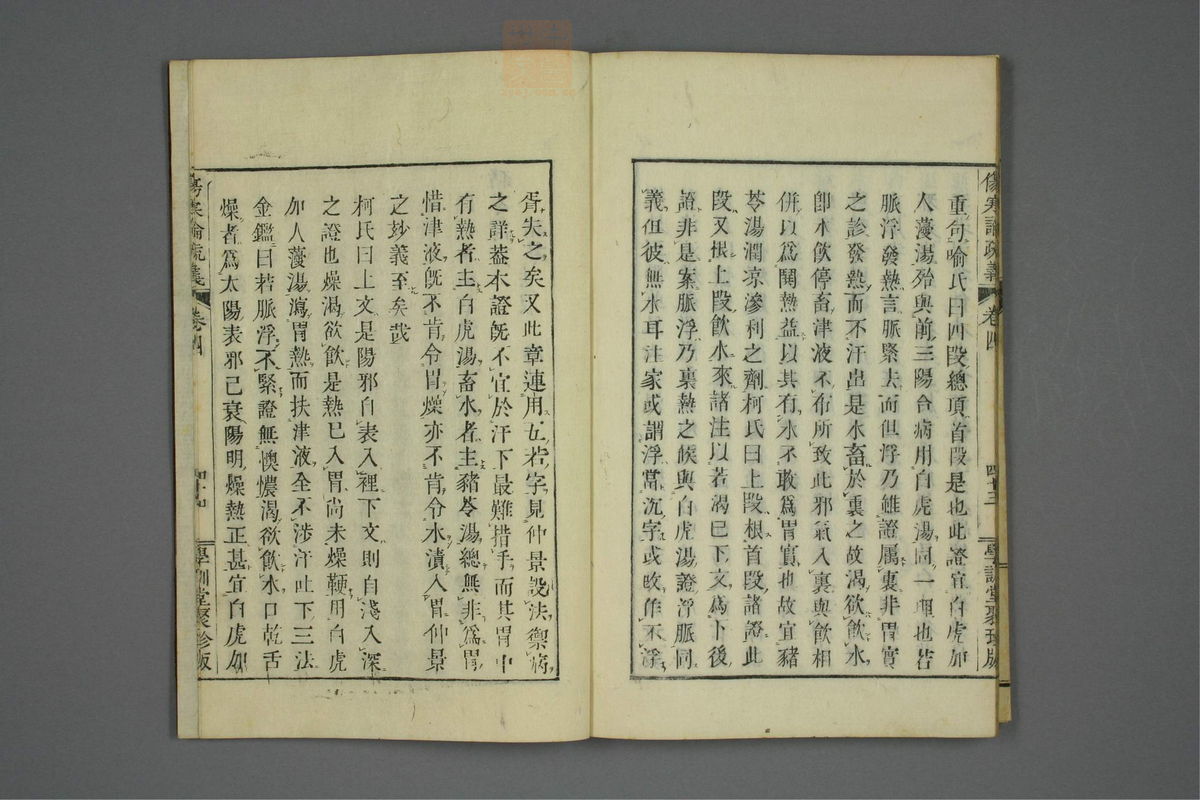 傷寒論疏義 卷四 四十三 學訓堂聚珍版
重句喻氏曰四段總項首段是也此證宜白虎加
人蓡湯殆與前三陽合病用白虎湯同一理也若
脈浮發熱言脈緊去而但浮乃雖證屬裏非胃實
之診發熱而不汗出是水畜於裏之故渴欲飲水
卽水飲停畜津液不布所致此邪氣入裏與飲相
併以爲鬱熱益以其有水不敢爲胃實也故宜豬
苓湯潤凉滲利之劑柯氏曰上段根首段諸證此
段又根上段飲水來諸注以若渴已下文爲卜後
證非是案脈浮乃裏熱之候與白虎湯證浮脈同
義但彼無水耳注家或謂浮當沉字或改作不浮
胥失之矣又此章連用五若字見仲景設法禦病
之詳葢本證旣不宜於汗下最難措手而其胃中
有熱者主白虎湯畜水者主豬苓湯總無非爲胃
惜津液旣不肯令胃燥亦不肯令水漬入胃仲景
之妙義至矣哉
柯氏曰上文是陽邪自表入裡下文則自淺入深
之證也燥渴欲飲是熱已入胃尚未燥鞕用白虎
加人蓡湯瀉胃熱而扶津液全不涉汗吐下三法
金鑑曰若脈浮不緊證無懊憹渴欲飲水口乾舌
燥者爲太陽表邪已衰陽明燥熱正甚宜白虎加
傷寒論疏義 卷四 學訓堂聚珍版